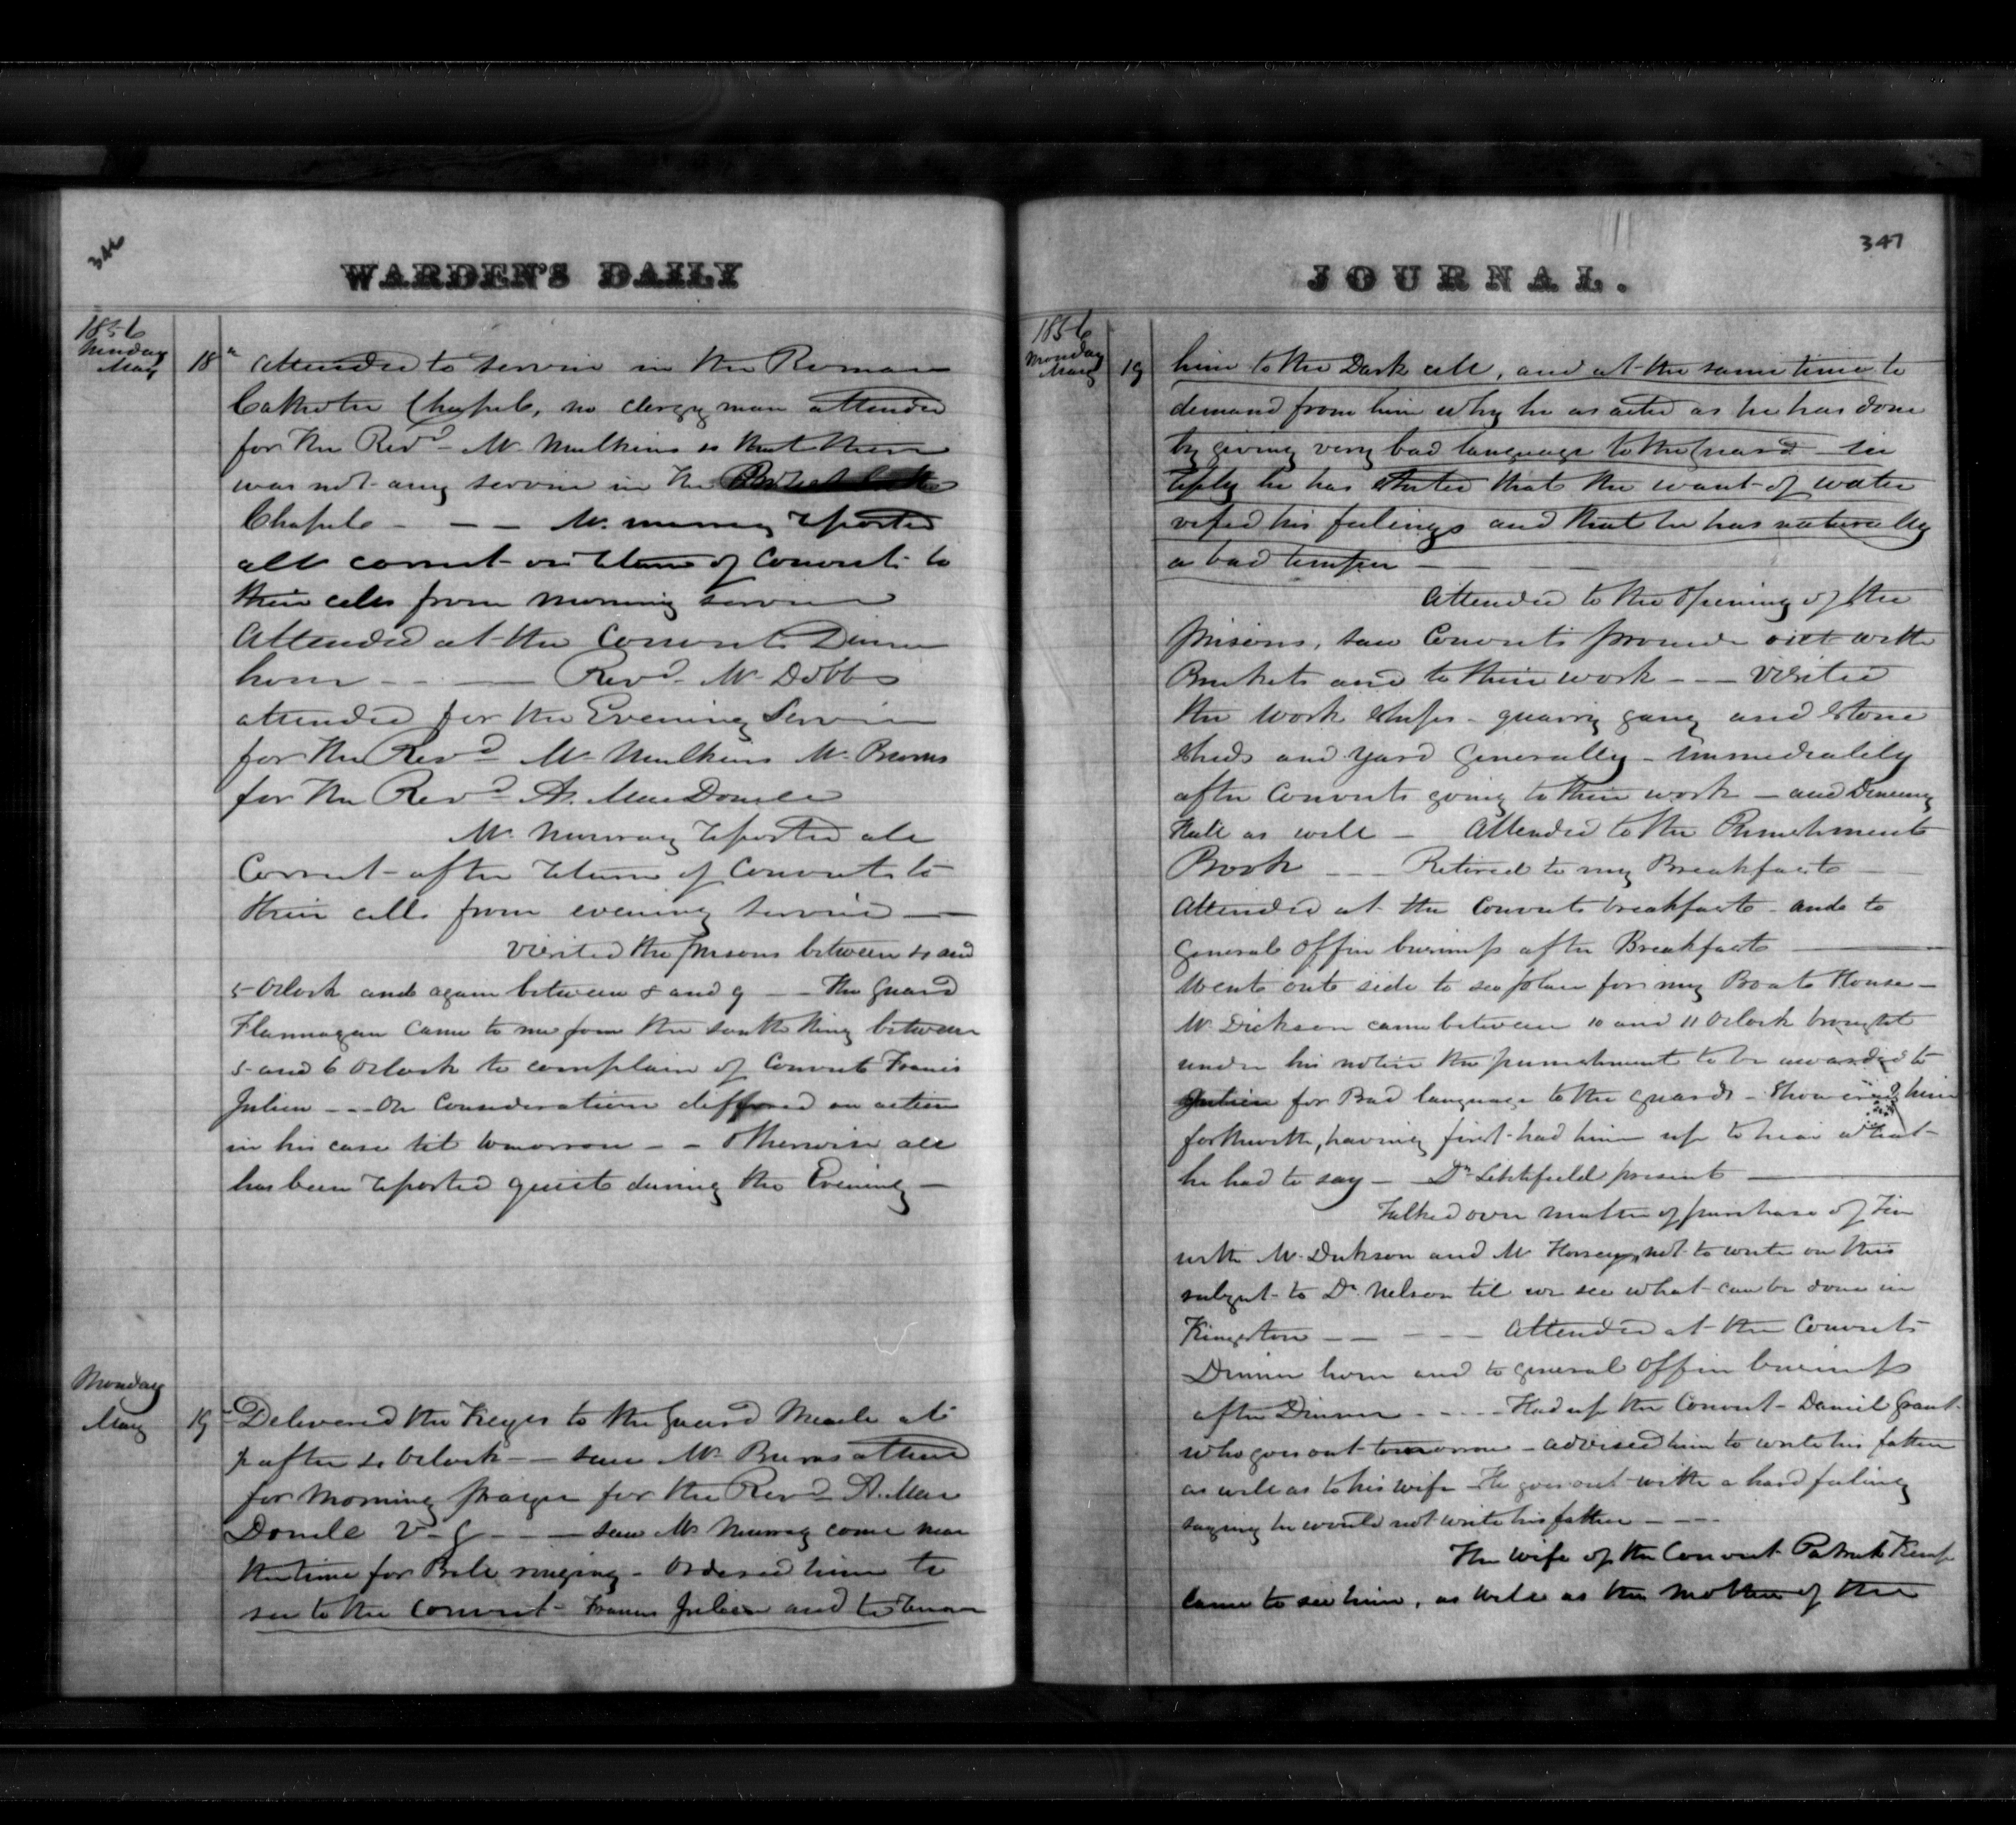 346
WARDEN'S DAILY
1856
Sunday
May 18th Attended to service in the Roman
Catholic Chapel, no clergyman attended
for the Revd Mr Mulkins so that there
was not any service in the Protestant
Chapel - - - Mr. Murray reported
all correct on return of Convicts to
their cells from morning service
Attended at the Convicts Dinner
hour - - - Revd Mr Dobbs
attended for the Evening Service
for the Revd Mr Mulkins Mr Burns
for the Revd A. MacDonell
Mr. Murray reported all
Correct after return of Convicts to
their cells from evening service —
Visited the prisons between 4 and
5 Oclock and again between 8 and 9 - - The Guard
Flannagan came to me from the south Wing between
5 and 6 Oclock to complain of Convict Francis
Julien - - On Consideration differed an action
in his case til tomorrow - - otherwise all
has been reported quiet during the Evening —
Monday
May 19 Delivered the Keys to the Guard Meagle at
½ after 4 oclock - - saw Mr Burns attend
for Morning prayer for the Revd A. Mac
Donell V. G. - - - saw Mr Murray come near
the time for Bell ringing - Ordered him to
see to the Convict Francis Julien and to
JOURNAL.
347
1856
Monday
May 19 him to the Dark cell, and at the same time to
demand from him why he as acted as he has done
by giving very bad language to the Guard in
reply he has stated that the want of water
vexed his feelings and that he has naturally
a bad temper - - -
Attended to the Opening of the
prisons, saw Convicts proceed out with
Buckets and to their work - - - Visited
the work shops - quarry gang and stone
sheds and yard Generally - immediately
after Convicts going to their work — and Dining
Hall as well - Attended to the Punishment
Book - - - Retired to my Breakfast —
Attended at the Convicts breakfast and to
general Office business after Breakfast —
Went out side to see place for my Boat House —
Mr Dickson came between 10 and 11 Oclock brought
under his notice the punishment to be awarded to
Julien for Bad language to the guards - Showered him
forthwith, having first had him up to hear what
he had to say — Dr Litchfield present —
Talked over matter of purchase of
with Mr Dickson and Mr Horsey, not to write on this
subject to Dr. Nelson til we see what can be done in
Kingston - - - - - Attended at the Convicts
Dinner hour and to general Office business
after Dinner - - - - Had up the Convict Daniel Grant
who goes out tomorrow - advised him to write his father
as well as to his wife - He goes out with a hard feeling
saying he would not write his father - - - -
The wife of the Convict Patrick Kemp
came to see him, as well as the mother of the